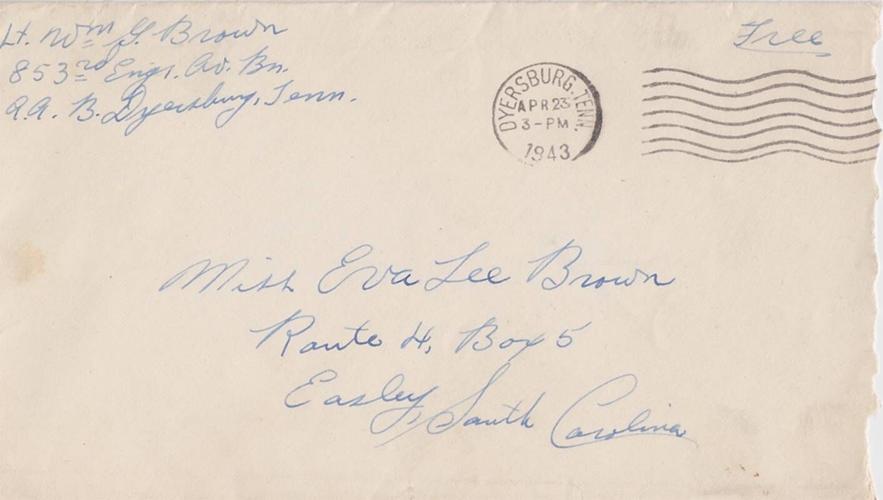 Lt. Wm G. Brown
853rd Engr. Av. Bn.
A.A.B. Dyersburg, Tenn.
Free
DYERSBURG, TENN.
APR 23
3-PM
1943
Miss Eva Lee Brown
Route 4, Box 5
Easley, South Carolina